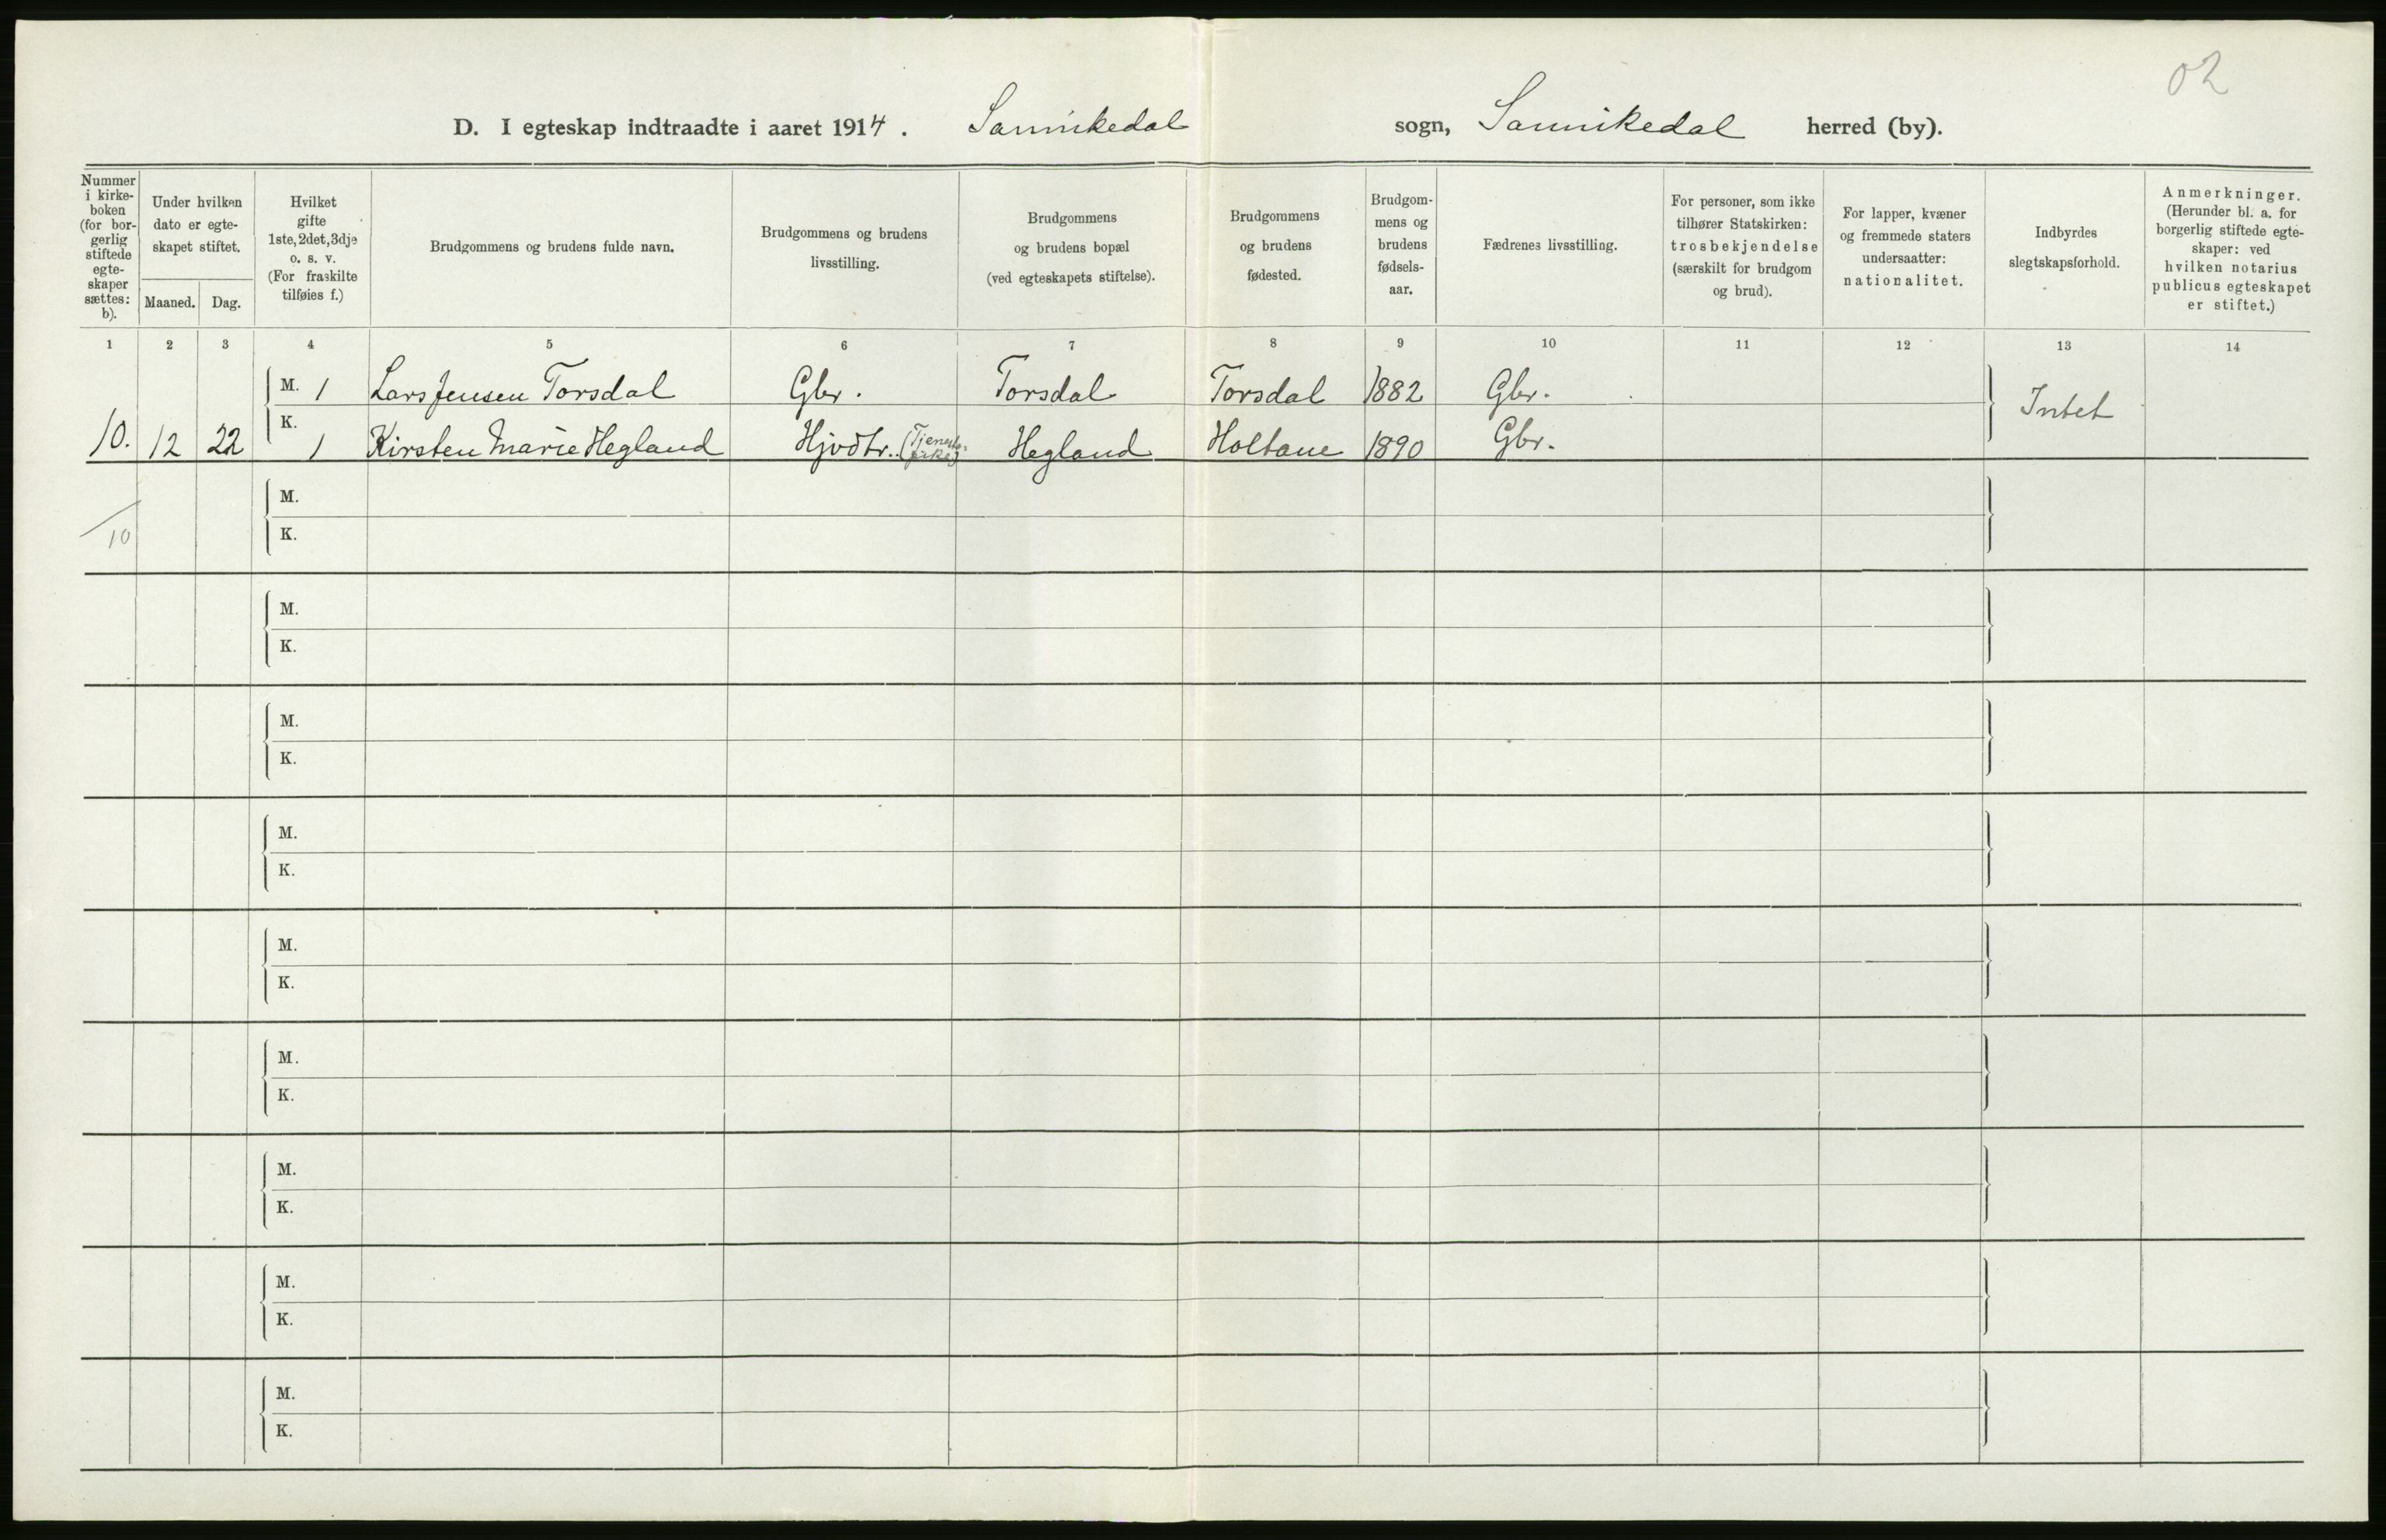 02
D. I egteskap indtraadte i aaret 1914. Sannikedal sogn, Sannikedal herred (by).
Nummer
i kirke-
boken
(for bor-
gerlig
stiftede
egte-
skaper
sættes:
b).
Under hvilken
dato er egte-
skapet stiftet.
Maaned. Dag.
Hvilket
gifte
1ste, 2det, 3dje
o. s. v.
(For fraskilte
tilføies f.)
Brudgommens og brudens fulde navn.
Brudgommens og brudens
livsstilling.
Brudgommens
og brudens bopæl
(ved egteskapets stiftelse).
Brudgommens
og brudens
fødested.
Brudgom-
mens og
brudens
fødsels-
aar.
Fædrenes livsstilling.
For personer, som ikke
tilhører Statskirken:
trosbekjendelse
(særskilt for brudgom
og brud).
For lapper, kvæner
og fremmede staters
undersaatter:
nationalitet.
Indbyrdes
slegtskapsforhold.
Anmerkninger.
(Herunder bl. a. for
borgerlig stiftede egte-
skaper: ved
hvilken notarius
publicus egteskapet
er stiftet.)
1 2 3 4 5 6 7 8 9 10 11 12 13 14
M. 1 Lars Jensen Torsdal Gbr. Torsdal Torsdal 1882 Gbr. Intet
10. 12 22 K. 1 Kirsten Marie Hegland Hjvdtr. (Tjeneste- Hegland Holtane 1890 Gbr.
M.
10 K.
M.
K.
M.
K.
M.
K.
M.
K.
M.
K.
M.
K.
M.
K.
M.
K.